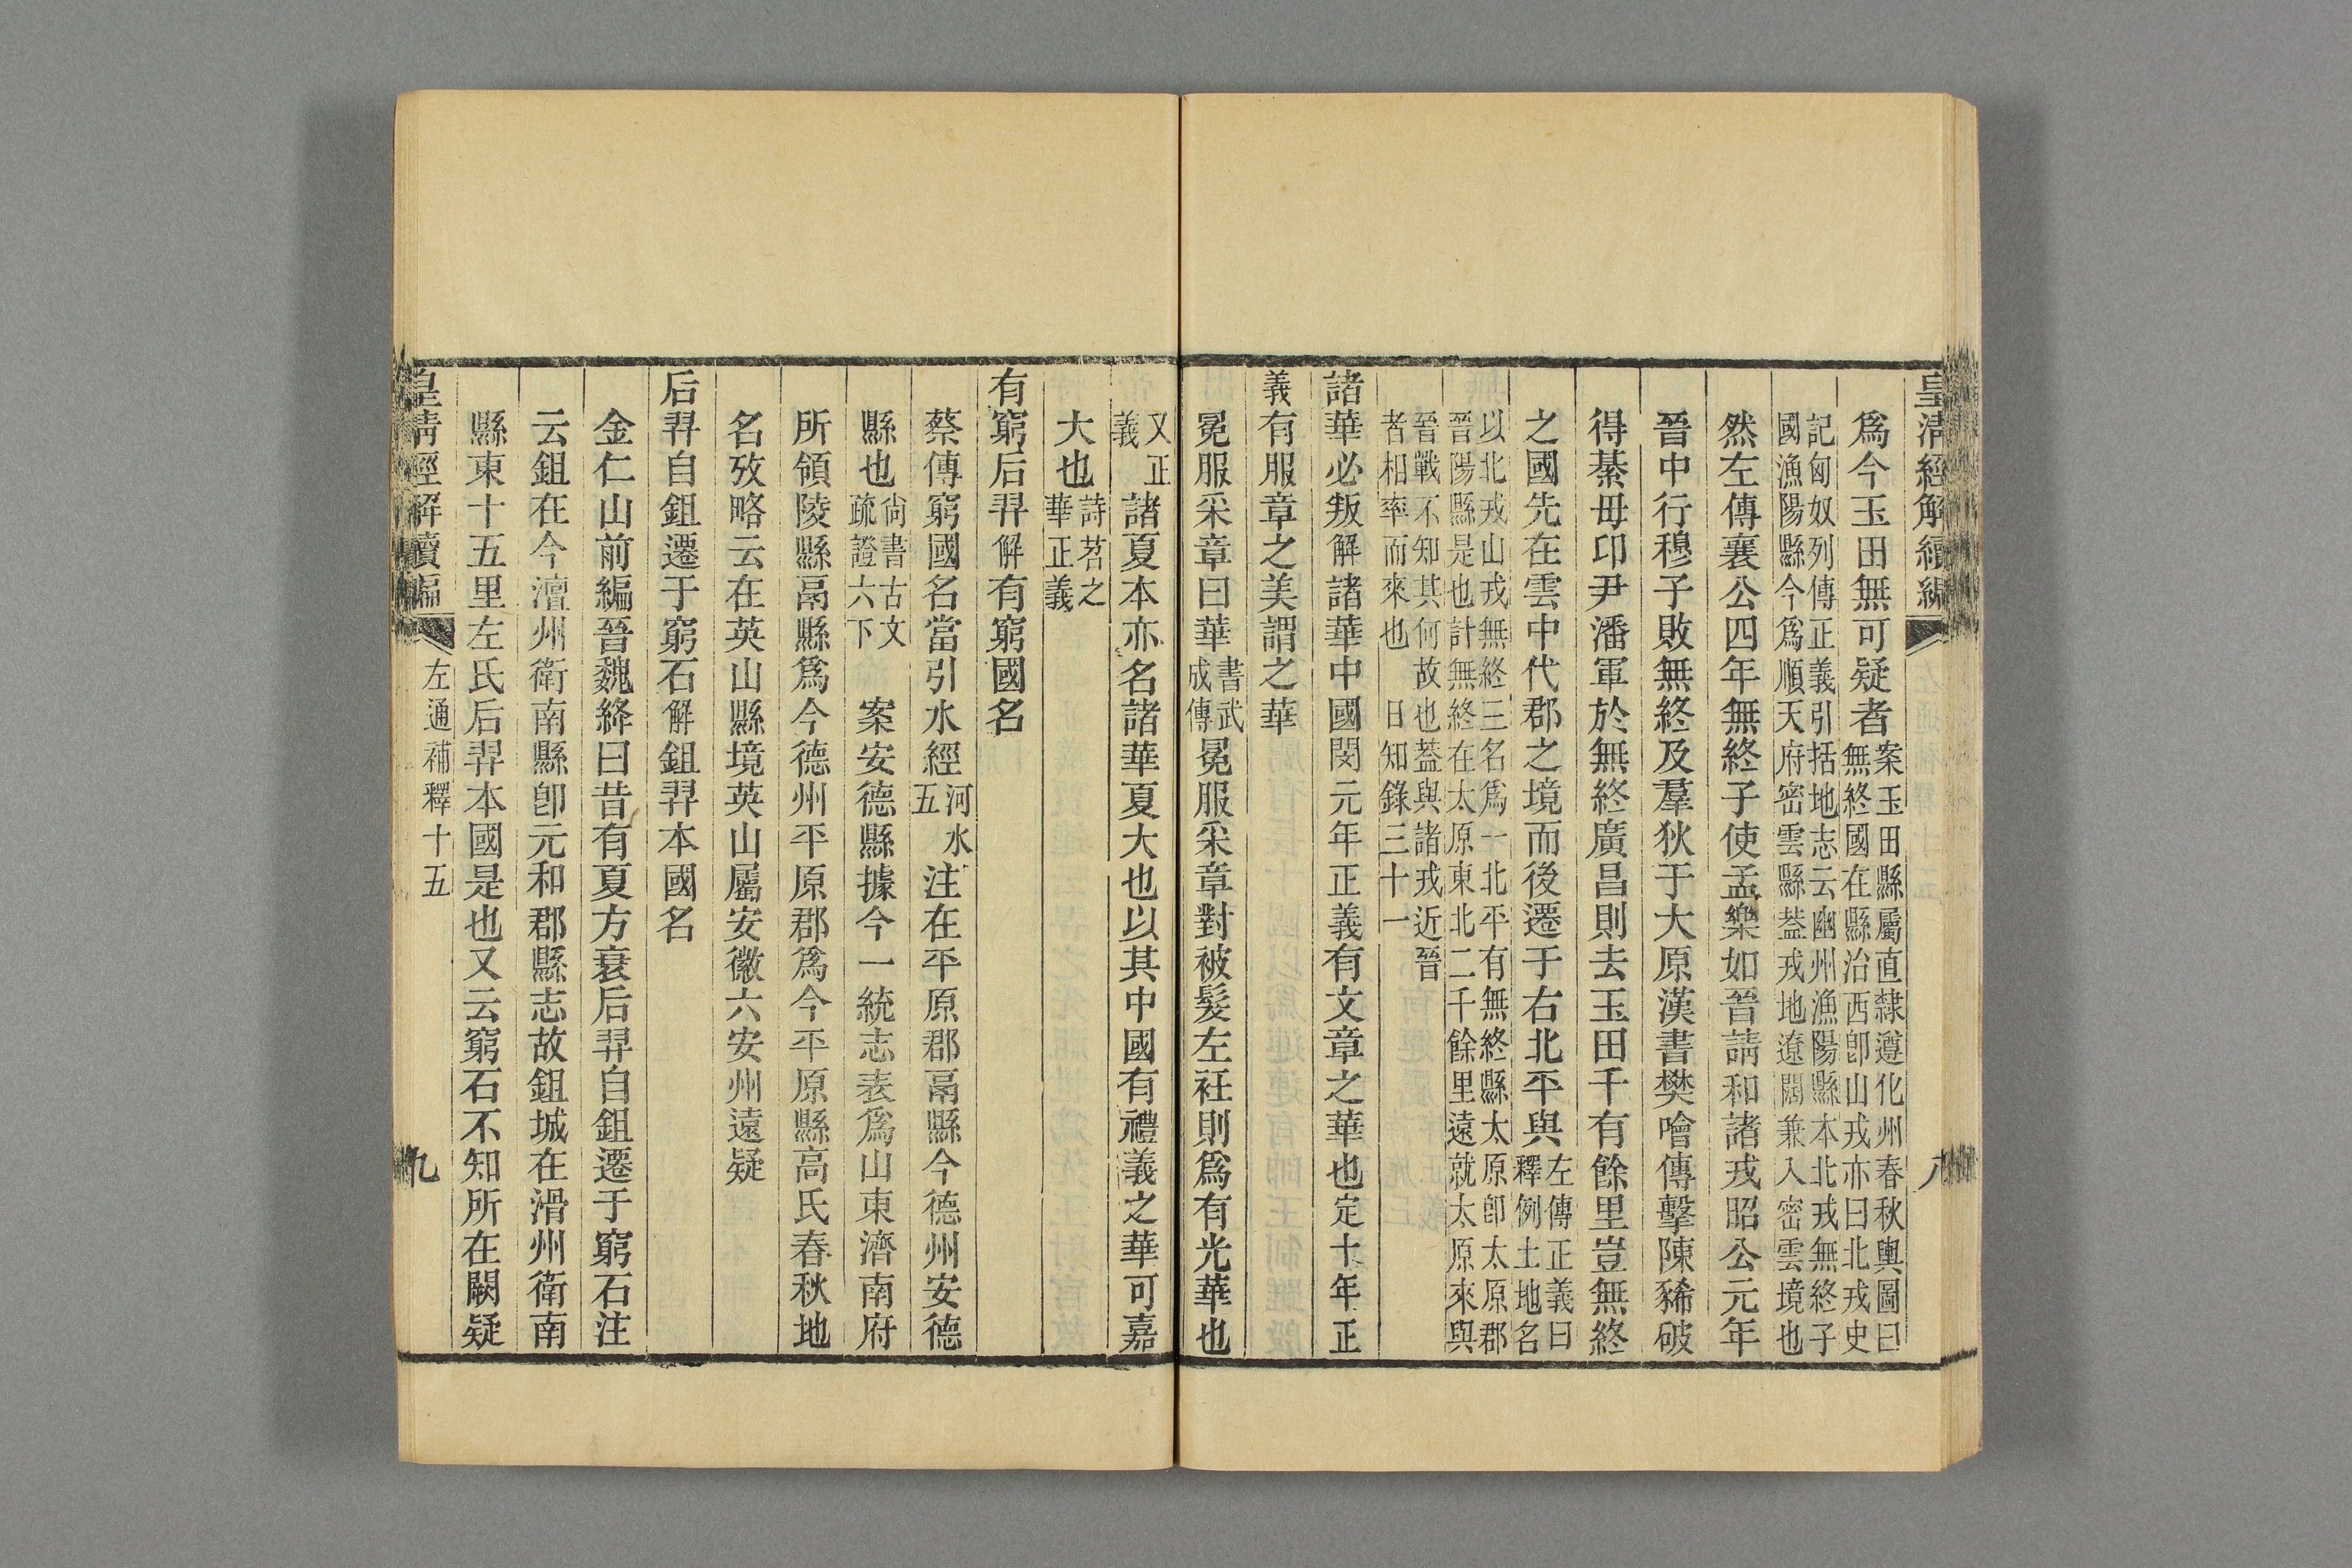 皇清經解續編
八
爲今玉田無可疑者案玉田縣屬直隸遵化州春秋輿圖曰無終國在縣治西卽山戎亦曰北戎史
記匈奴列傳正義引括地志云幽州漁陽縣本北戎無終子國漁陽縣今爲順天府密雲縣葢戎地遼闊兼入密雲境也
然左傳襄公四年無終子使孟樂如晉請和諸戎昭公元年
晉中行穆子敗無終及羣狄于大原漢書樊噲傳擊陳豨破
得綦毋卬尹潘軍於無終廣昌則去玉田千有餘里豈無終
之國先在雲中代郡之境而後遷于右北平與左傳正義曰釋例土地名
以北戎山戎無終三名爲一北平有無終縣太原卽太原郡晉陽縣是也計無終在太原東北二千餘里遠就太原來與
晉戰不知其何故也葢與諸戎近晉者相率而來也 日知錄三十一
諸華必叛解諸華中國閔元年正義有文章之華也定十年正
義有服章之美謂之華
冕服采章曰華書武成傳冕服采章對被髮左衽則爲有光華也
又正義諸夏本亦名諸華夏大也以其中國有禮義之華可嘉
大也詩苕之華正義
有窮后羿解有窮國名
蔡傳窮國名當引水經河水五注在平原郡鬲縣今德州安德
縣也尙書古文疏證六下 案安德縣據今一統志表爲山東濟南府
所領陵縣鬲縣爲今德州平原郡爲今平原縣高氏春秋地
名攷略云在英山縣境英山屬安徽六安州遠疑
后羿自鉏遷于窮石解鉏羿本國名
金仁山前編晉魏絳曰昔有夏方衰后羿自鉏遷于窮石注
云鉏在今澶州衛南縣卽元和郡縣志故鉏城在滑州衛南
縣東十五里左氏后羿本國是也又云窮石不知所在闕疑
皇清經解續編
左通補釋十五
九